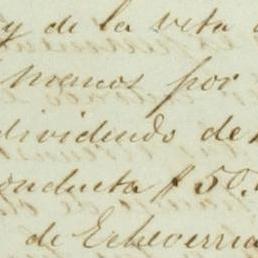 y de la veta
menos por
dividendo de
conducta $ 50.
de Echeverria